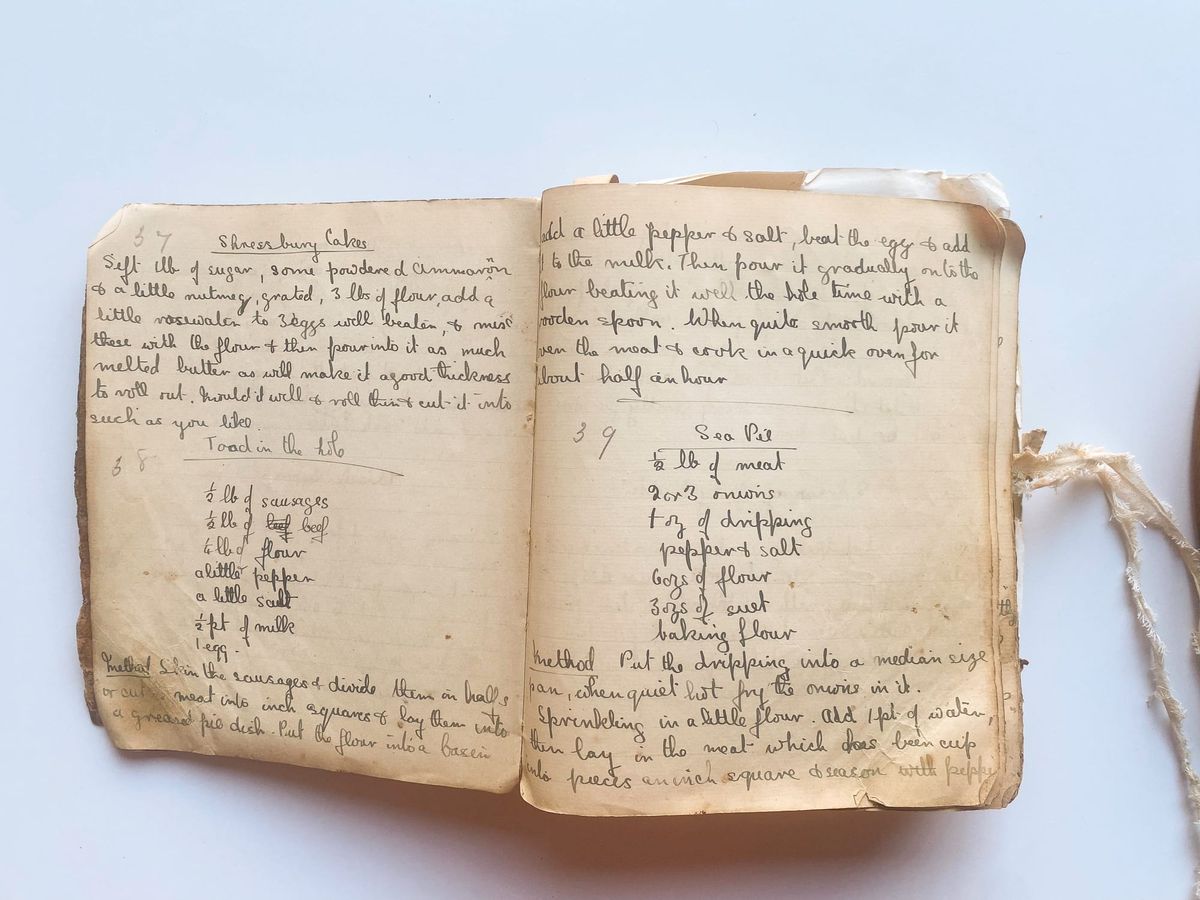 37
Shressbury Cakes
Sift 1lb of sugar, some powdered Cinnamon
& a little nutmeg, grated, 3 lbs of flour, add a
little rosewater to 3 eggs well beaten, & mix
these with the flour & then pour into it as much
melted butter as will make it a good thickness
to roll out. Mould it well & roll thin & cut it into
such as you like.
38
Toad in the hole
½ lb of sausages
½ lb of beef
¼ lb of flour
a little pepper
a little salt
½ pt of milk
1 egg.
Method Skin the sausages & divide them in halfs
or cut meat into inch squares & lay them into
a greased pie dish. Put the flour into a basin
add a little pepper & salt, beat the egg & add
to the milk. Then pour it gradually on to the
flour beating it well the hole time with a
wooden spoon. When quite smooth pour it
over the meat & cook in a quick oven for
about half an hour
39
Sea Pie
½ lb of meat
2 or 3 onions
1 oz of dripping
pepper & salt
6 ozs of flour
3 ozs of suet
baking flour
Method Put the dripping into a median size
pan, when quiet hot fry the onions in it.
Sprinkling in a little flour. Add 1 pt of water,
then lay in the meat which has been cup
into pieces an inch square & season with peppe